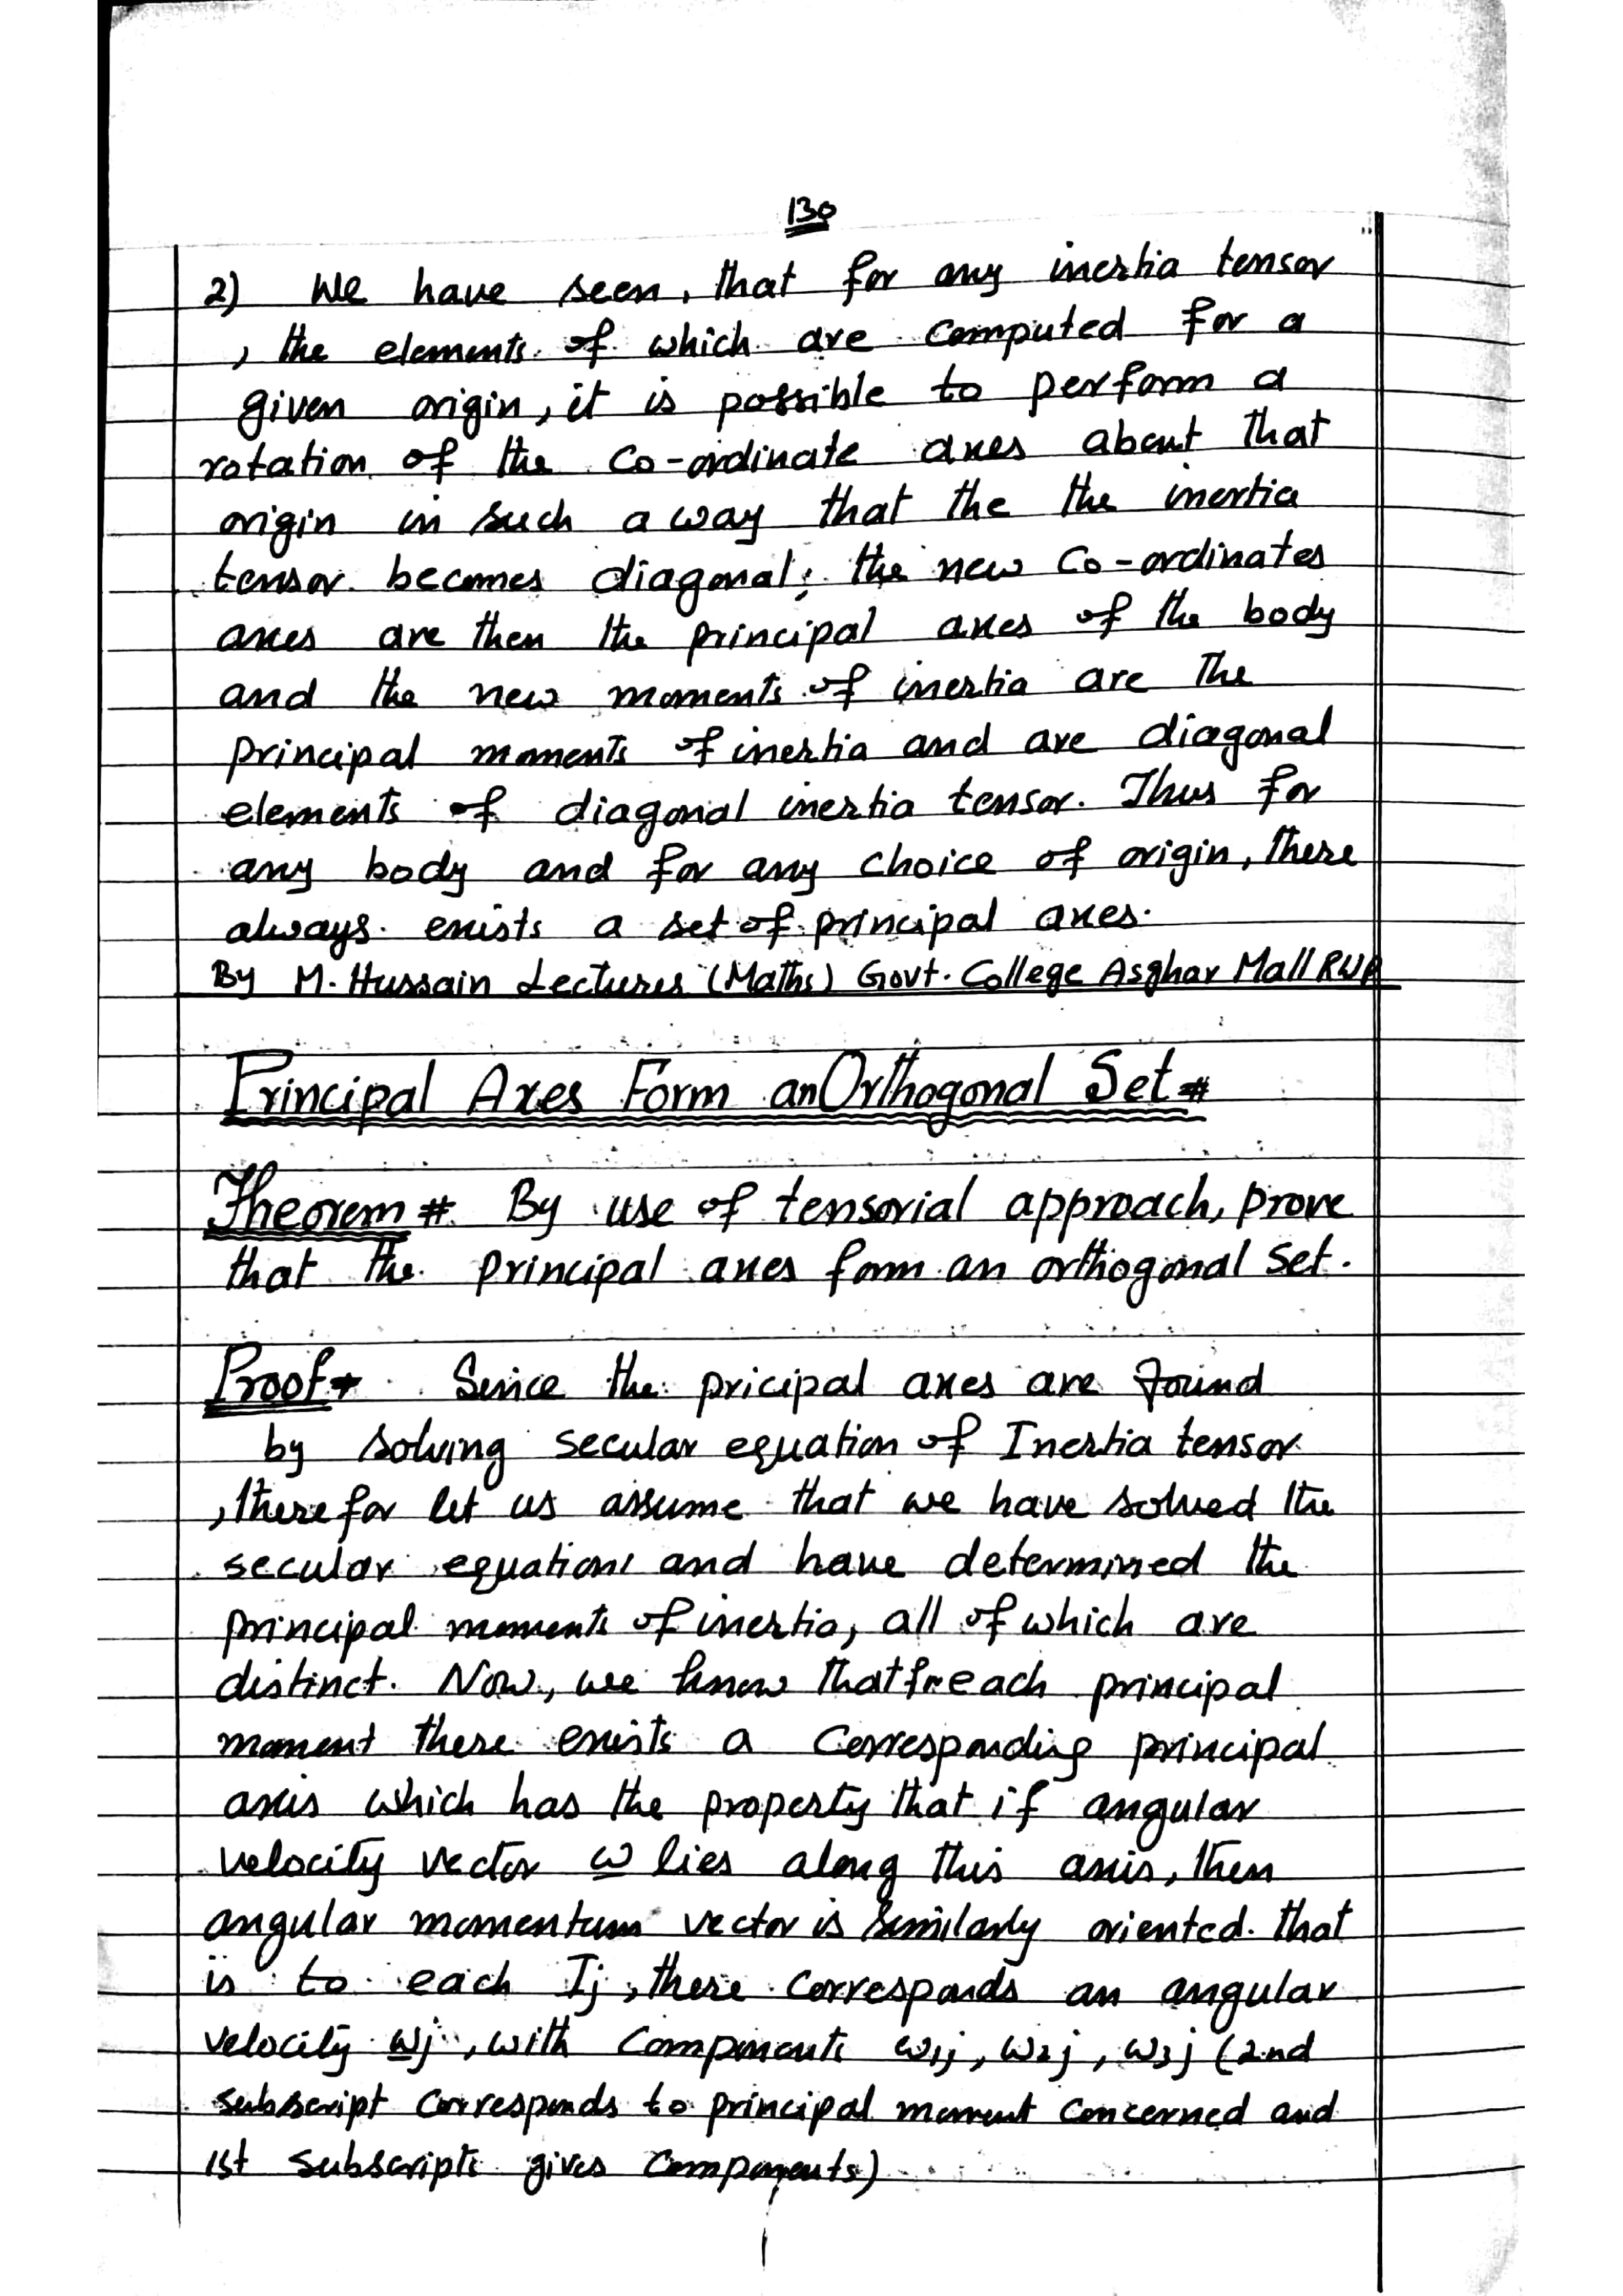 130
2) We have seen, that for any inertia tensor
, the elements of which are computed for a
given origin, it is possible to perform a
rotation of the Co-ordinate axes about that
origin in such a way that the the inertia
tensor becomes diagonal; the new Co-ordinates
axes are then the principal axes of the body
and the new moments of inertia are the
principal moments of inertia and are diagonal
elements of diagonal inertia tensor. Thus for
any body and for any choice of origin, there
always exists a set of principal axes.
By M. Hussain Lecturer (Maths) Govt. College Asghar Mall RWP
Principal Axes Form an Orthogonal Set #
Theorem # By use of tensorial approach, prove
that the principal axes form an orthogonal set.
Proof Since the pricipal axes are found
by solving secular equation of Inertia tensor
, therefor let us assume that we have solved the
secular equation and have determined the
principal moments of inertia, all of which are
distinct. Now, we know that for each principal
moment there exists a Corresponding principal
axis which has the property that if angular
velocity vector ω lies along this axis, then
angular momentum vector is similarly oriented. that
is to each Ij, there corresponds an angular
velocity ωj, with Components ω1j, ω2j, ω3j (2nd
subscript corresponds to principal moment concerned and
1st subscripts gives components)